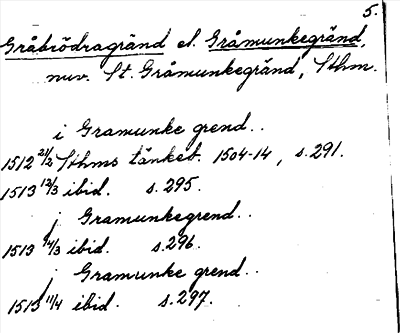 5.
Gråbrödragränd el. Gråmunkegränd,
nuv. St. Gråmunkegränd, Sthm.
i Gramunke grend..
1512 21/2 Sthms tänkeb. 1504-14, s.291.
1513 12/3 ibid. s.295.
j Gramunkegrend..
1513 14/3 ibid. s.296.
j Gramunke grend..
1513 11/4 ibid. s.297.